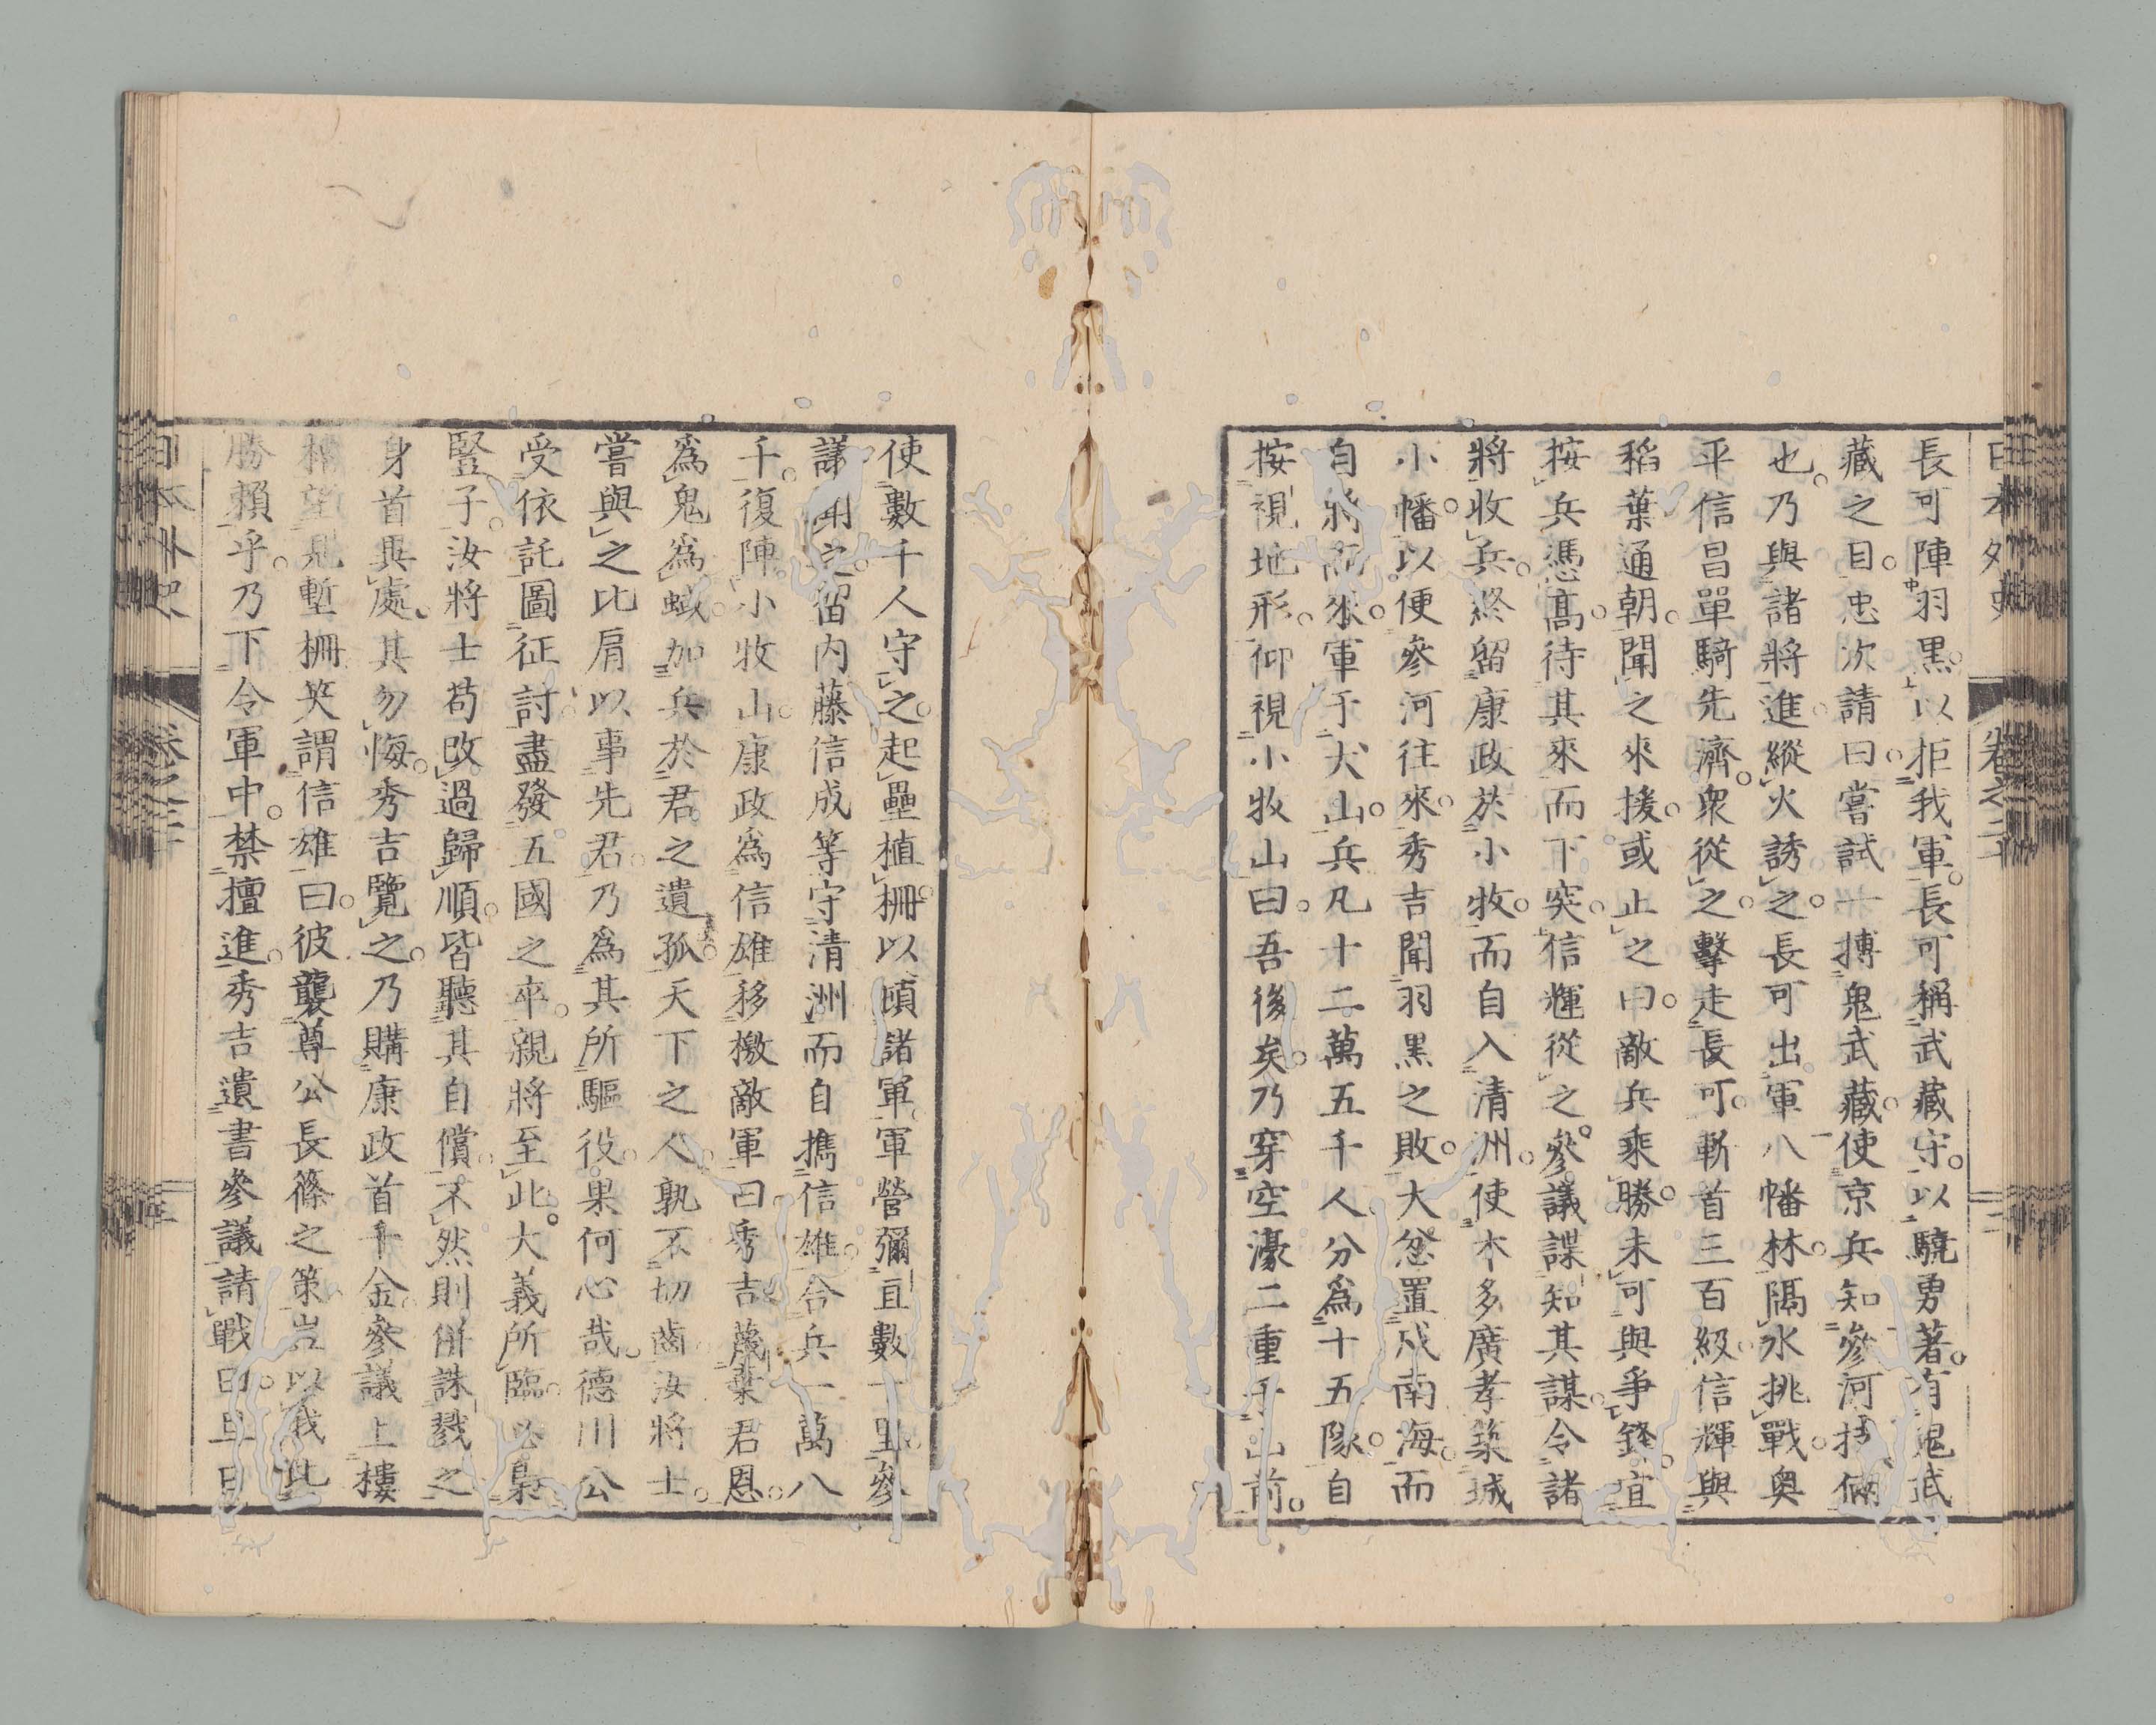 日本外史 卷之二十
長可陣羽黒。以拒我軍。長可稱武藏守。以驍勇著。有鬼武
藏之目。忠次請曰。嘗試一搏鬼武藏。使京兵知參河技倆
也。乃與諸將進。縱火誘之。長可出軍八幡林。隔水挑戰。奥
平信昌單騎先濟。衆從之。擊走長可。斬首三百級。信輝與
稻葉通朝聞之來援。或止之曰。敵兵乘勝。未可與爭鋒。宜
按兵憑髙。待其來而下突。信輝從之。參議諜知其謀。令諸
將收兵。終留康政於小牧。而自入清洲。使本多廣孝築城
小幡。以便參河往來。秀吉聞羽黒之敗。大忿。置戍南海。而
自將而來。軍于犬山。兵凡十二萬五千人。分爲十五隊。自
按視地形。仰視小牧山曰。吾後矣。乃穿空濠二重于山前。
使數千人守之。起壘植柵。以頓諸軍。軍營彌亘數十里。參
議聞之。留内藤信成等守清洲。而自攜信雄。合兵一萬八
千。復陣小牧山。康政爲信雄移檄敵軍曰。秀吉蔑棄君恩。
爲鬼爲蜮。加兵於君之遺孤。天下之人孰不切齒。汝將士。
嘗與之比肩。以事先君。乃爲其所驅役。果何心哉。德川公
受依託。圖征討。盡發五國之卒。親將至此。大義所臨。必梟
豎子。汝將士苟改過歸順。皆聽其自償。不然則併誅戮之。
身首異處。其勿悔。秀吉覽之。乃購康政首千金。參議上樓
櫓望見塹柵。笑謂信雄曰。彼襲尊公長篠之策。豈以我此
勝賴乎。乃下令軍中。禁擅進。秀吉遺書參議請戰曰。旦日
日本外史 卷之二十